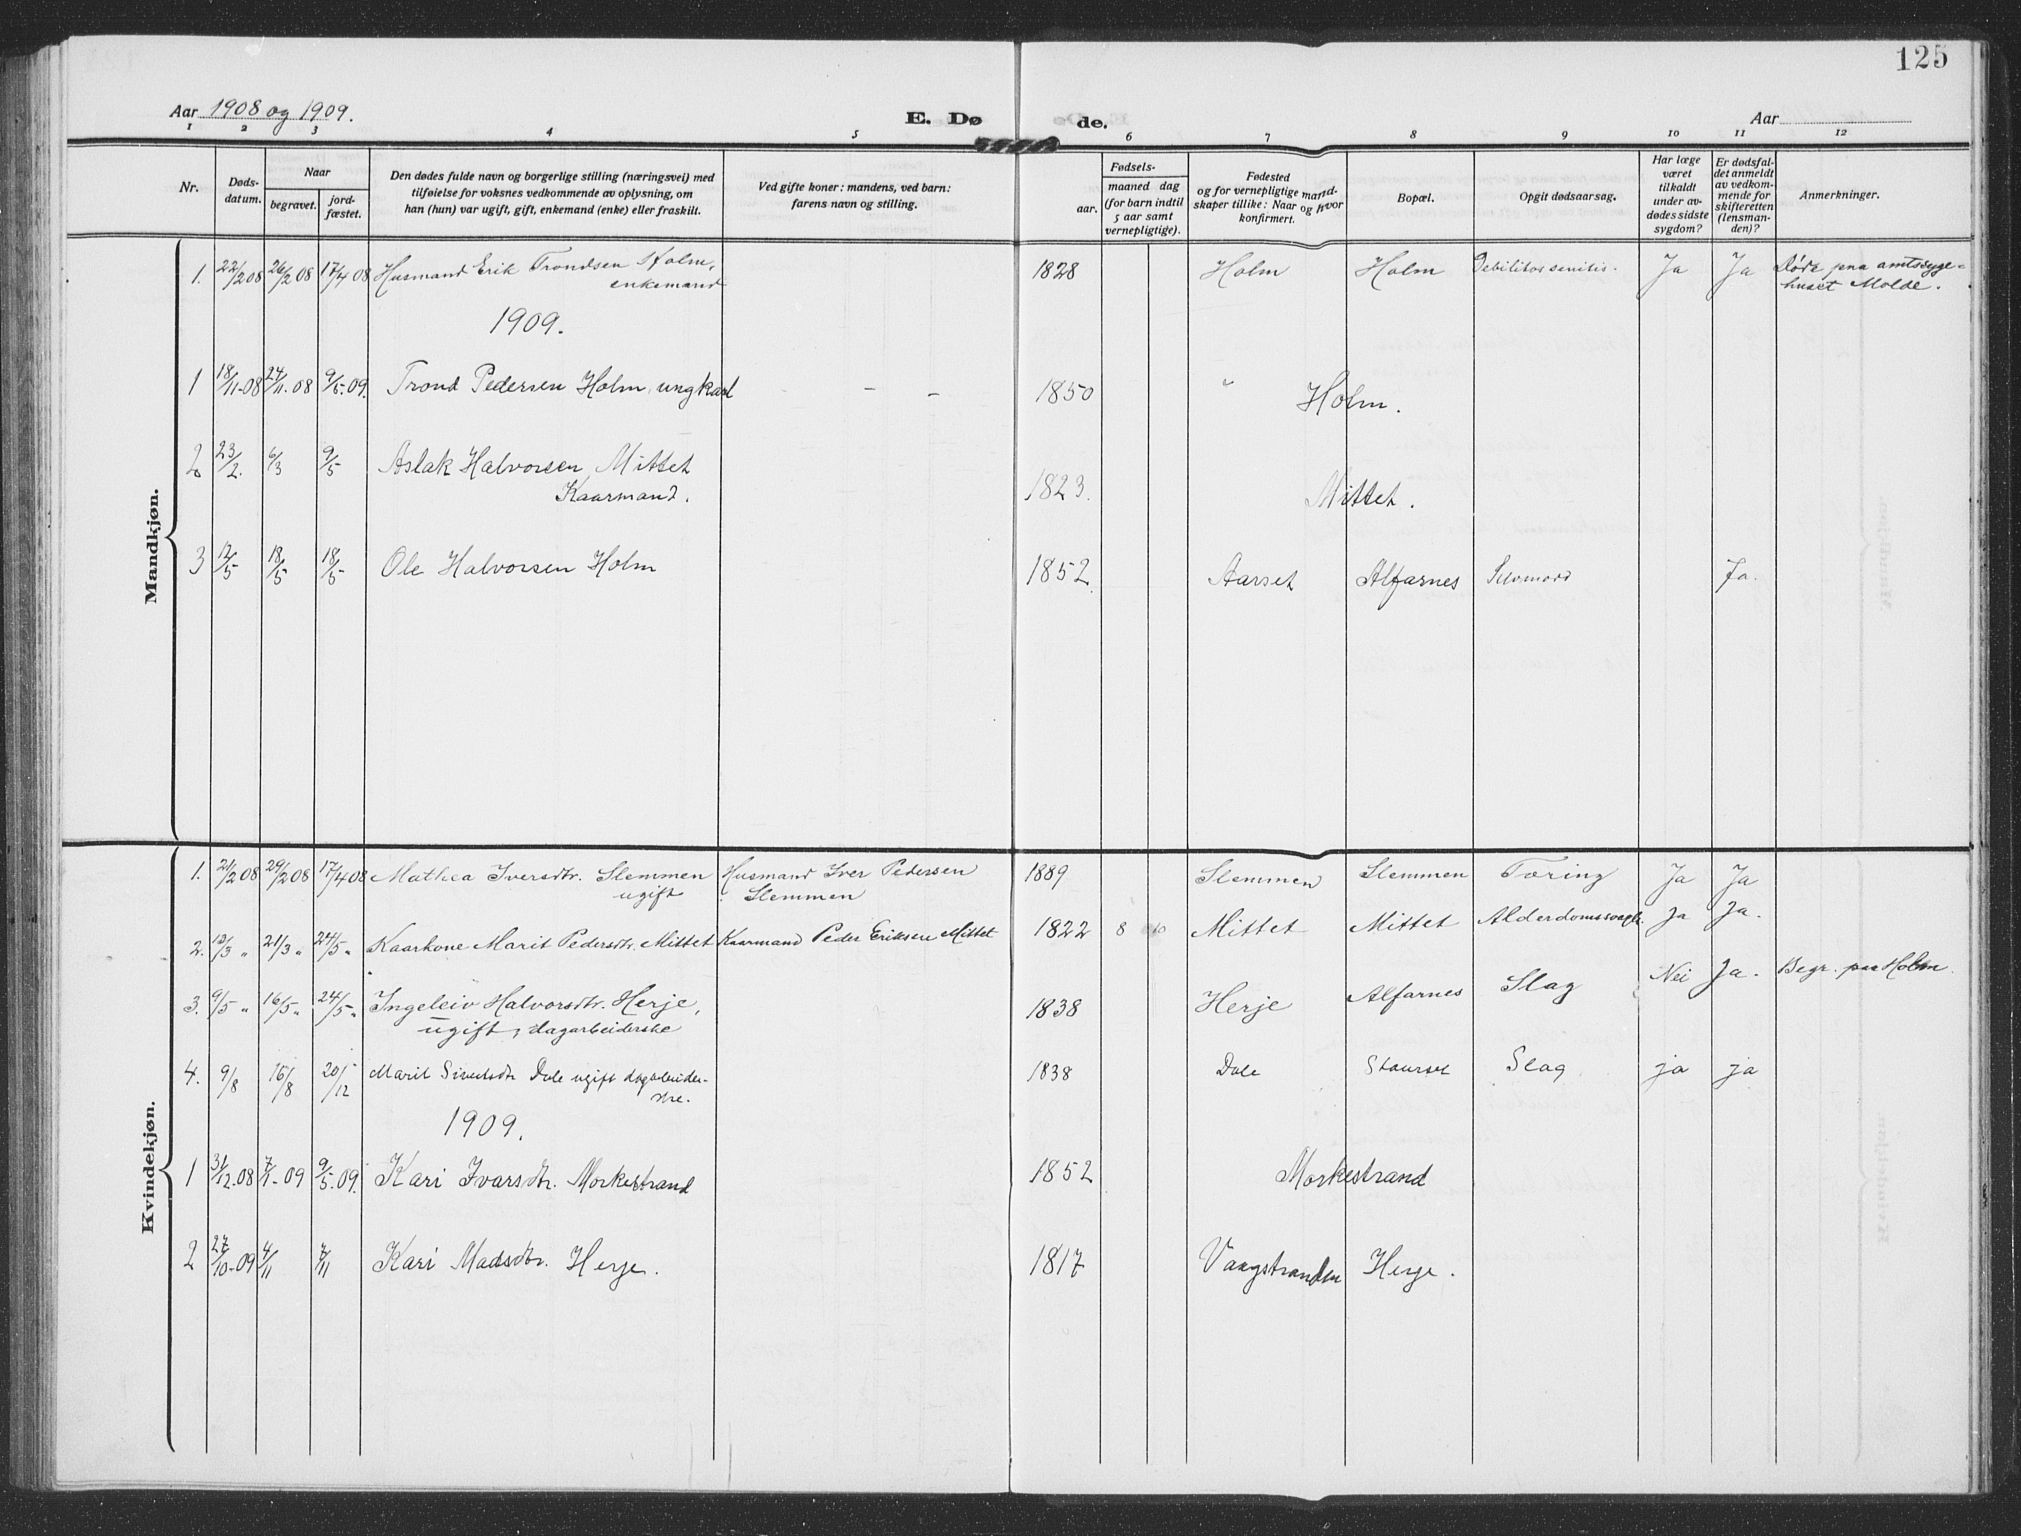 125
Aar 1908 og 1909.
E. Dø
de.
Aar
1 2 3 4 5 6 7 8 9 10 11 12
Nr.
Døds-
datum.
Naar
begravet.
jord-
fæstet.
Den dødes fulde navn og borgerlige stilling (næringsvei) med
tilføielse for voksnes vedkommende av oplysning, om
han (hun) var ugift, gift, enkemand (enke) eller fraskilt.
Ved gifte koner: mandens, ved barn:
farens navn og stilling.
Fødsels-
aar.
maaned dag
(for barn indtil
5 aar samt
vernepligtige).
Fødested
og for vernepligtige mand-
skaper tillike: Naar og hvor
konfirmert.
Bopæl.
Opgit dødsaarsag.
Har læge
været
tilkaldt
under av-
dødes sidste
sygdom?
Er dødsfal-
det anmeldt
av vedkom-
mende for
skifteretten
(lensman-
den)?
Anmerkninger.
Mandkjøn.
1. 22/2 08 26/2 08 17/4 08 Husmand Erik Trondsen Holm, 1828 Holm Holm Debilitas senilis. Ja Ja Døde paa amtssyge-
enkemand huset Molde.
1909.
1 18/11-08 24/11-08 9/5-09. Trond Pedersen Holm, ungkarl - - 1850 " Holm.
2 23/2. 6/3 9/5 Aslak Halvorsen Mittet 1823. Mittet.
Kaarmand.
3 12/5 18/5 18/5 Ole Halvorsen Holm 1852. Aarset Alfarnes Selvmord Ja.
Kvindekjøn.
1. 21/2 08 29/2 08 17/4 08 Mathea Iversdtr. Slemmen Husmand Iver Pedersen 1889 Slemmen Slemmen Tæring Ja Ja
ugift Slemmen
2. 12/3 " 21/3 " 24/5 " Kaarkone Marit Pedersdtr. Mittet Kaarmand Peder Eriksen Mittet 1822 8 10 Mittet Mittet Alderdomssvagh. Ja Ja.
3. 9/5 " 16/5 " 24/5 " Ingeleiv Halvorsdtr. Herje, 1838 Herje Alfarnes Slag Nei Ja. Begr. paa Holm.
ugift, dagarbeiderske
4. 9/8 16/8 20/12 Marit Sivertsdtr Dale ugift dagarbeider- 1838 Dale Staurset Slag ja ja
ske.
1909.
1 31/12-08 7/1-09 9/5-09. Kari Ivarsdtr. Morkestrand 1852 Morkestrand
2 27/10-09 4/11 7/11 Kari Madsdtr. Herje. 1817 Vaagstranden Herje.